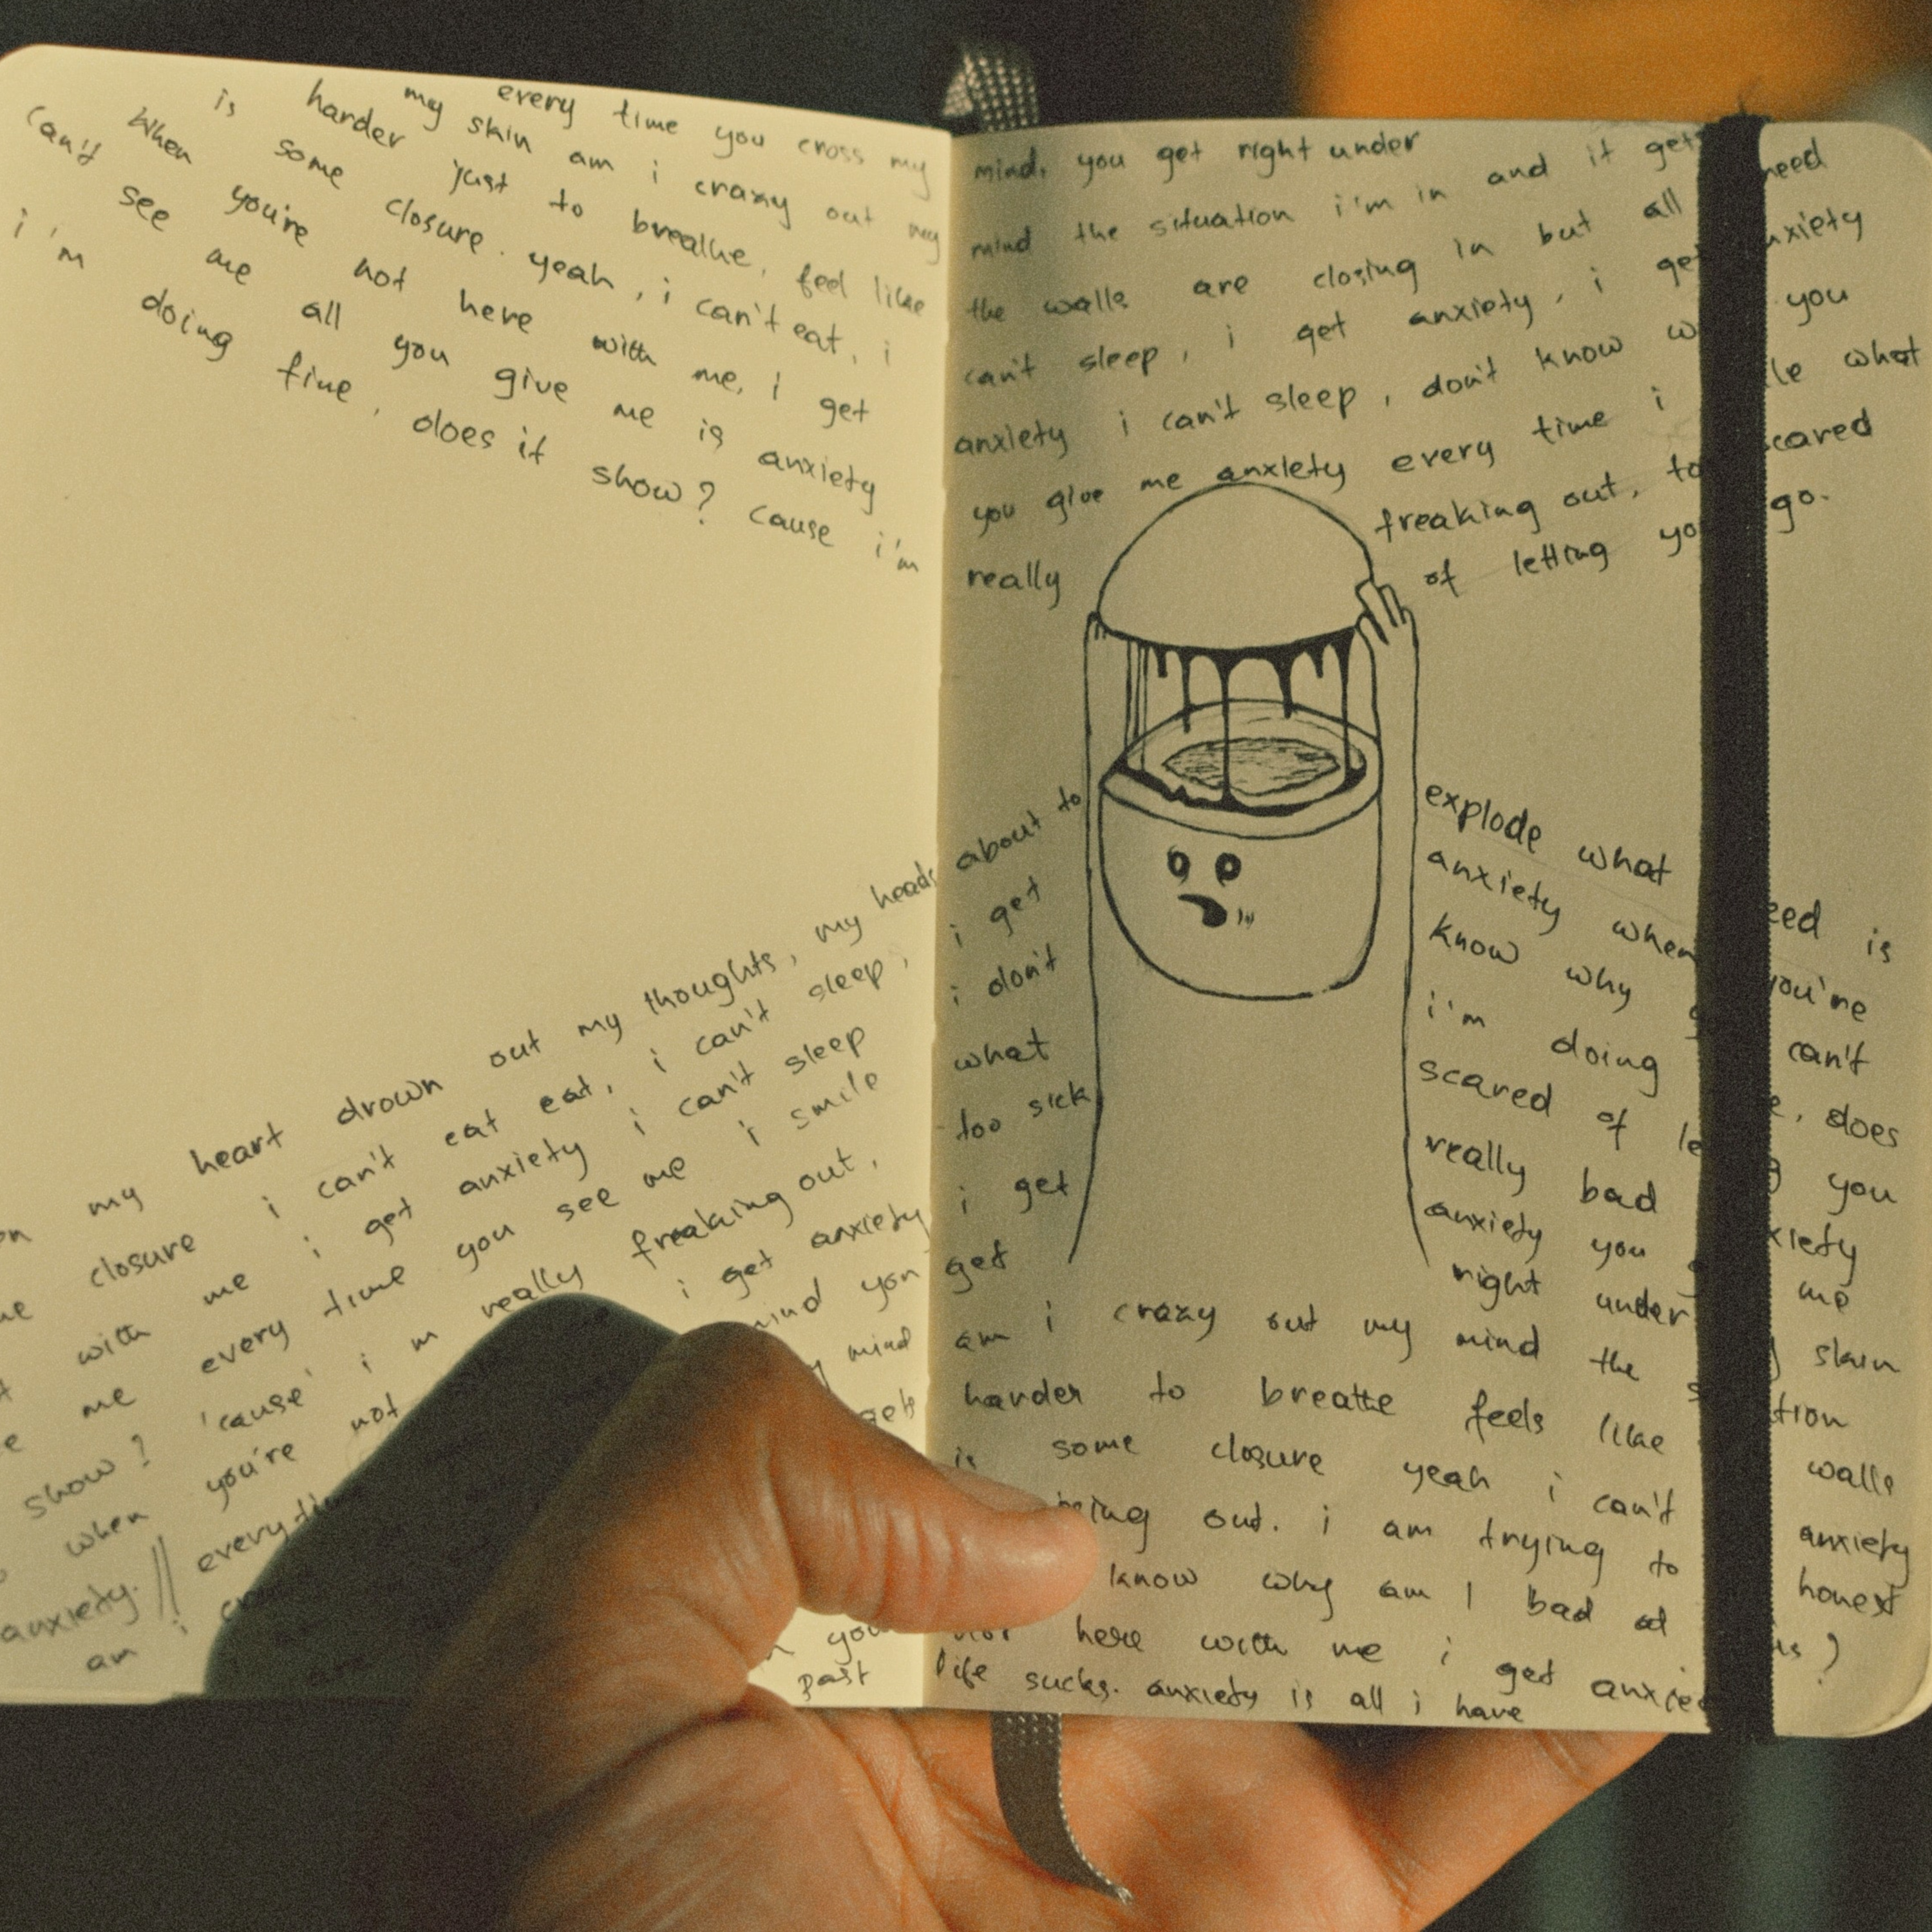 every time you cross my
my skin am i crazy out my
is harder just to breathe, feel like
some closure. yeah, i can't eat, i
When you're not here with me, i get
can't see me all you give me is anxiety
i'm doing fine, does it show? cause i'm
my heart drown out my thoughts, my heads
closure i can't eat eat, i can't sleep,
with me i get anxiety i can't sleep
me every time you see me i smile
show? 'cause' i m really freaking out,
when you're not i get anxiety
anxiety. mind you
am i mind
gets
past
mind, you get right under
mind the situation i'm in and it gets
the walls are closing in but all need
can't sleep, i get anxiety, i get anxiety
anxiety i can't sleep, don't know you
you give me anxiety every time i what
really freaking out, to scared
of letting go.
about to explode what
i get anxiety when is
i don't know why you're
what i'm doing can't
too sick scared of does
i get really bad you
get anxiety you
right under me
am i crazy out my mind the skin
harder to breathe feels like
is some closure yeah i can't walls
out. i am trying to anxiety
know why am I bad at honest
here with me i get
life sucks. anxiety is all i have